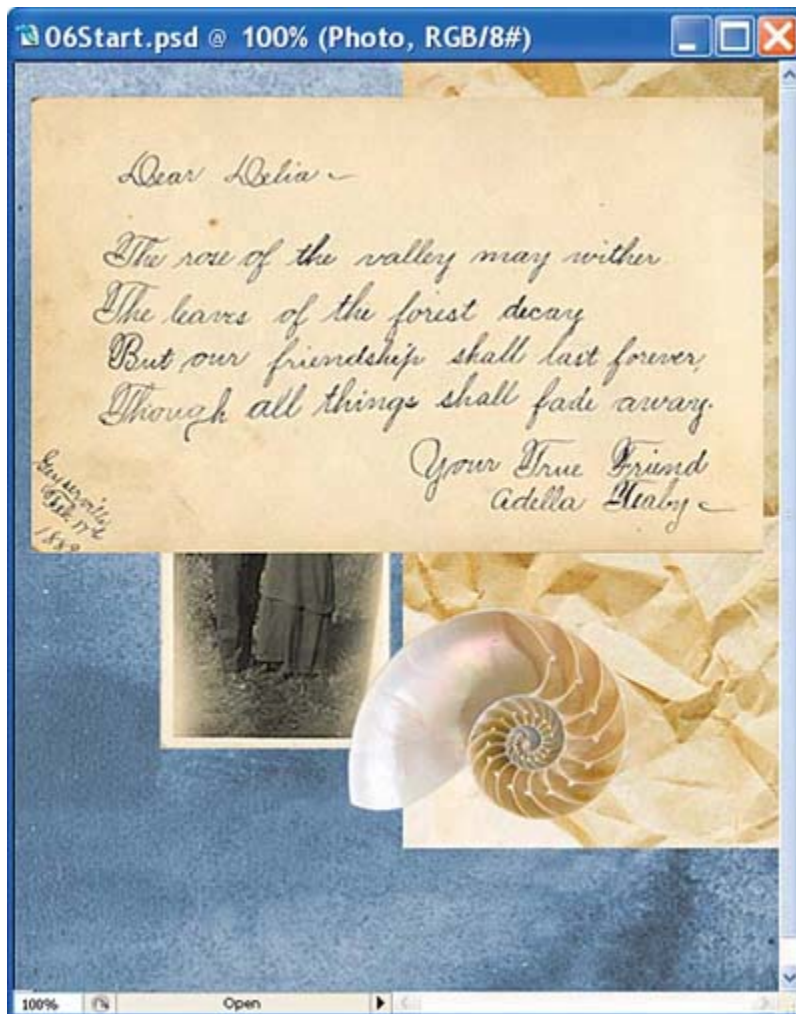 06Start.psd @ 100% (Photo, RGB/8#)
Dear Delia
The rose of the valley may wither
The leaves of the forest decay
But our friendship shall last forever,
Though all things shall fade away.
Your True Friend
Adella
Geyserville
Feb. 17th
100%
Open